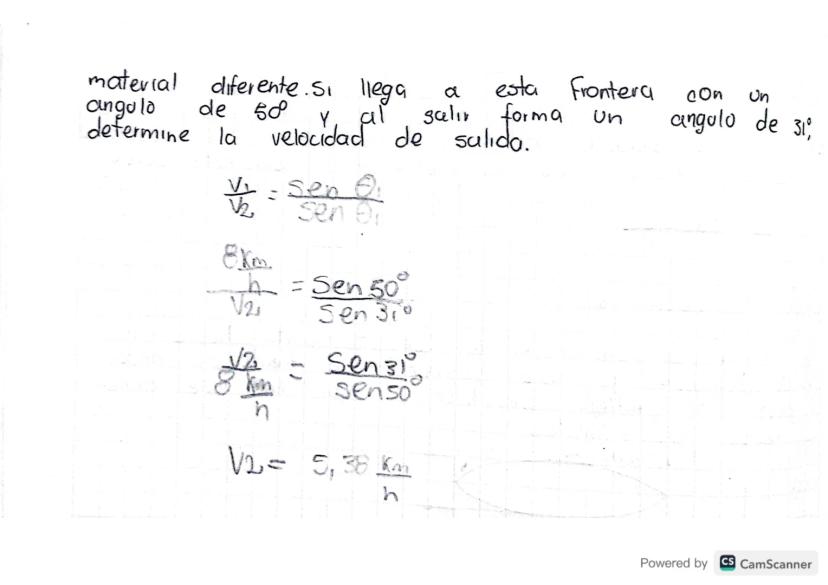 material diferente. Si llega a esta frontera con un
angulo de 50° y al salir forma un angulo de 31°,
determine la velocidad de salida.
V1/V2 = Sen θ1/Sen θ1
8 Km/h/V2 = Sen 50°/Sen 31°
V2/8 Km/h = Sen 31°/sen 50°
V2 = 5,38 Km/h
Powered by CS CamScanner